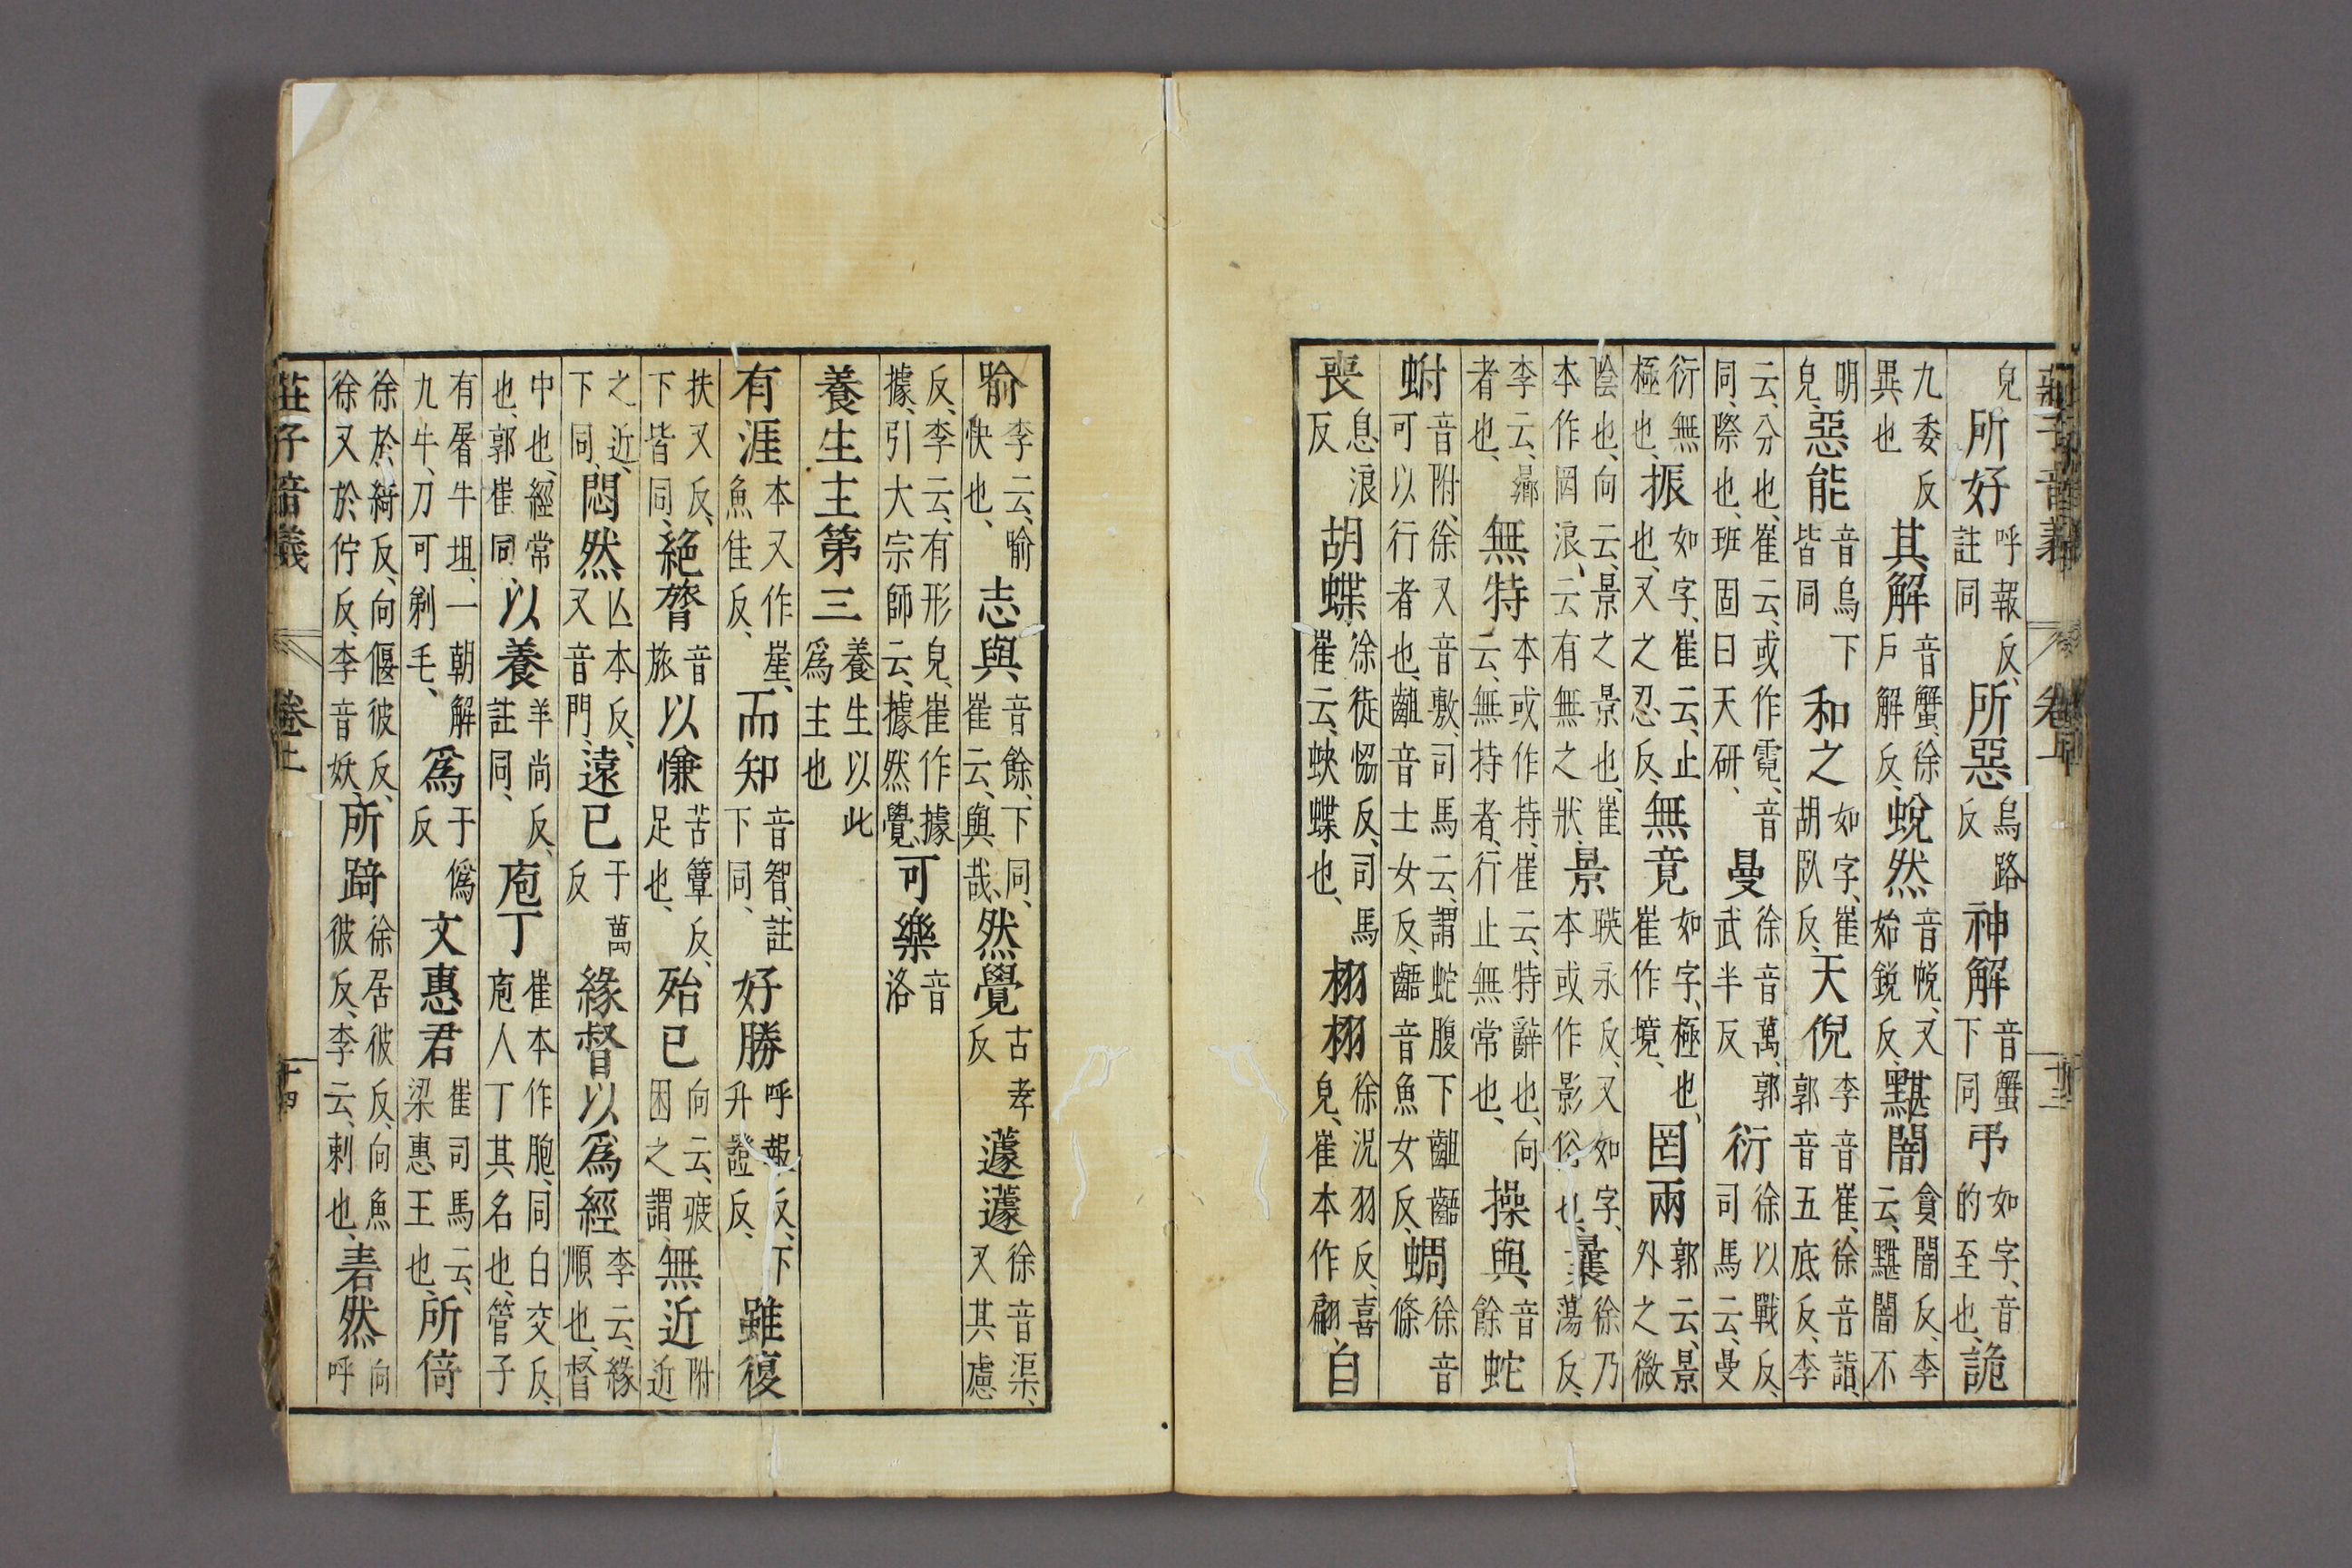 皃、所好呼報反、註同所惡烏路反神解音蟹下同弔如字、音的至也、詭
九委反異也其解音蟹、徐戶解反、蛻然音帨、又始銳反、黮闇貪闇反、李云、黮闇不
明皃、惡能音烏下皆同和之如字、崔胡臥反、天倪李音崔、徐音詣、郭音五底反、李
云、分也、崔云、或作霓、音同、際也、班固曰天研、曼徐音萬、郭武半反衍徐以戰反、司馬云、曼
衍無極也、振如字、崔云、止也、又之忍反、無竟如字、極也、崔作境、罔兩郭云、景外之微
陰也、向云、景之景也、崔本作罔浪、云有無之狀、景暎永反、又如字、本或作影俗也、曩徐乃蕩反、
李云、曏者也、無特本或作持、崔云、特辭也、向云、無持者、行止無常也、操與音餘蛇
蚹音附、徐又音敷、司馬云、謂蛇腹下齟齬可以行者也、齟音士女反、齬音魚女反、蜩徐音條
喪息浪反胡蝶徐徒恊反、司馬崔云、蛺蝶也、栩栩徐況羽反、喜皃、崔本作翩、自
喻李云、喻快也、志與音餘、下同、崔云、與哉、然覺古孝反蘧蘧徐音渠、又其慮
反、李云、有形皃、崔作據據、引大宗師云、據然覺、可樂音洛
養生主第三養生以此爲主也
有涯本又作崖、魚佳反、而知音智、註下同、好勝呼報反、下升證反、雖復
扶又反、下皆同、絶膂音旅以慊苦簟反、足也、殆已向云、疲困之謂、無近附近
之近、下同、悶然亡本反、又音門、遠已于萬反緣督以爲經李云、緣順也、督
中也、經常也、郭崔同、以養羊尚反、註同、庖丁崔本作胞、同白交反、庖人丁其名也、管子
有屠牛坦、一朝解九牛、刀可剃毛、爲于僞反文惠君崔司馬云、梁惠王也、所倚
徐於綺反、向偃彼反、徐又於佇反、李音妖、所踦徐居彼反、向魚彼反、李云、刺也、砉然向呼
莊子音義 卷上 十四